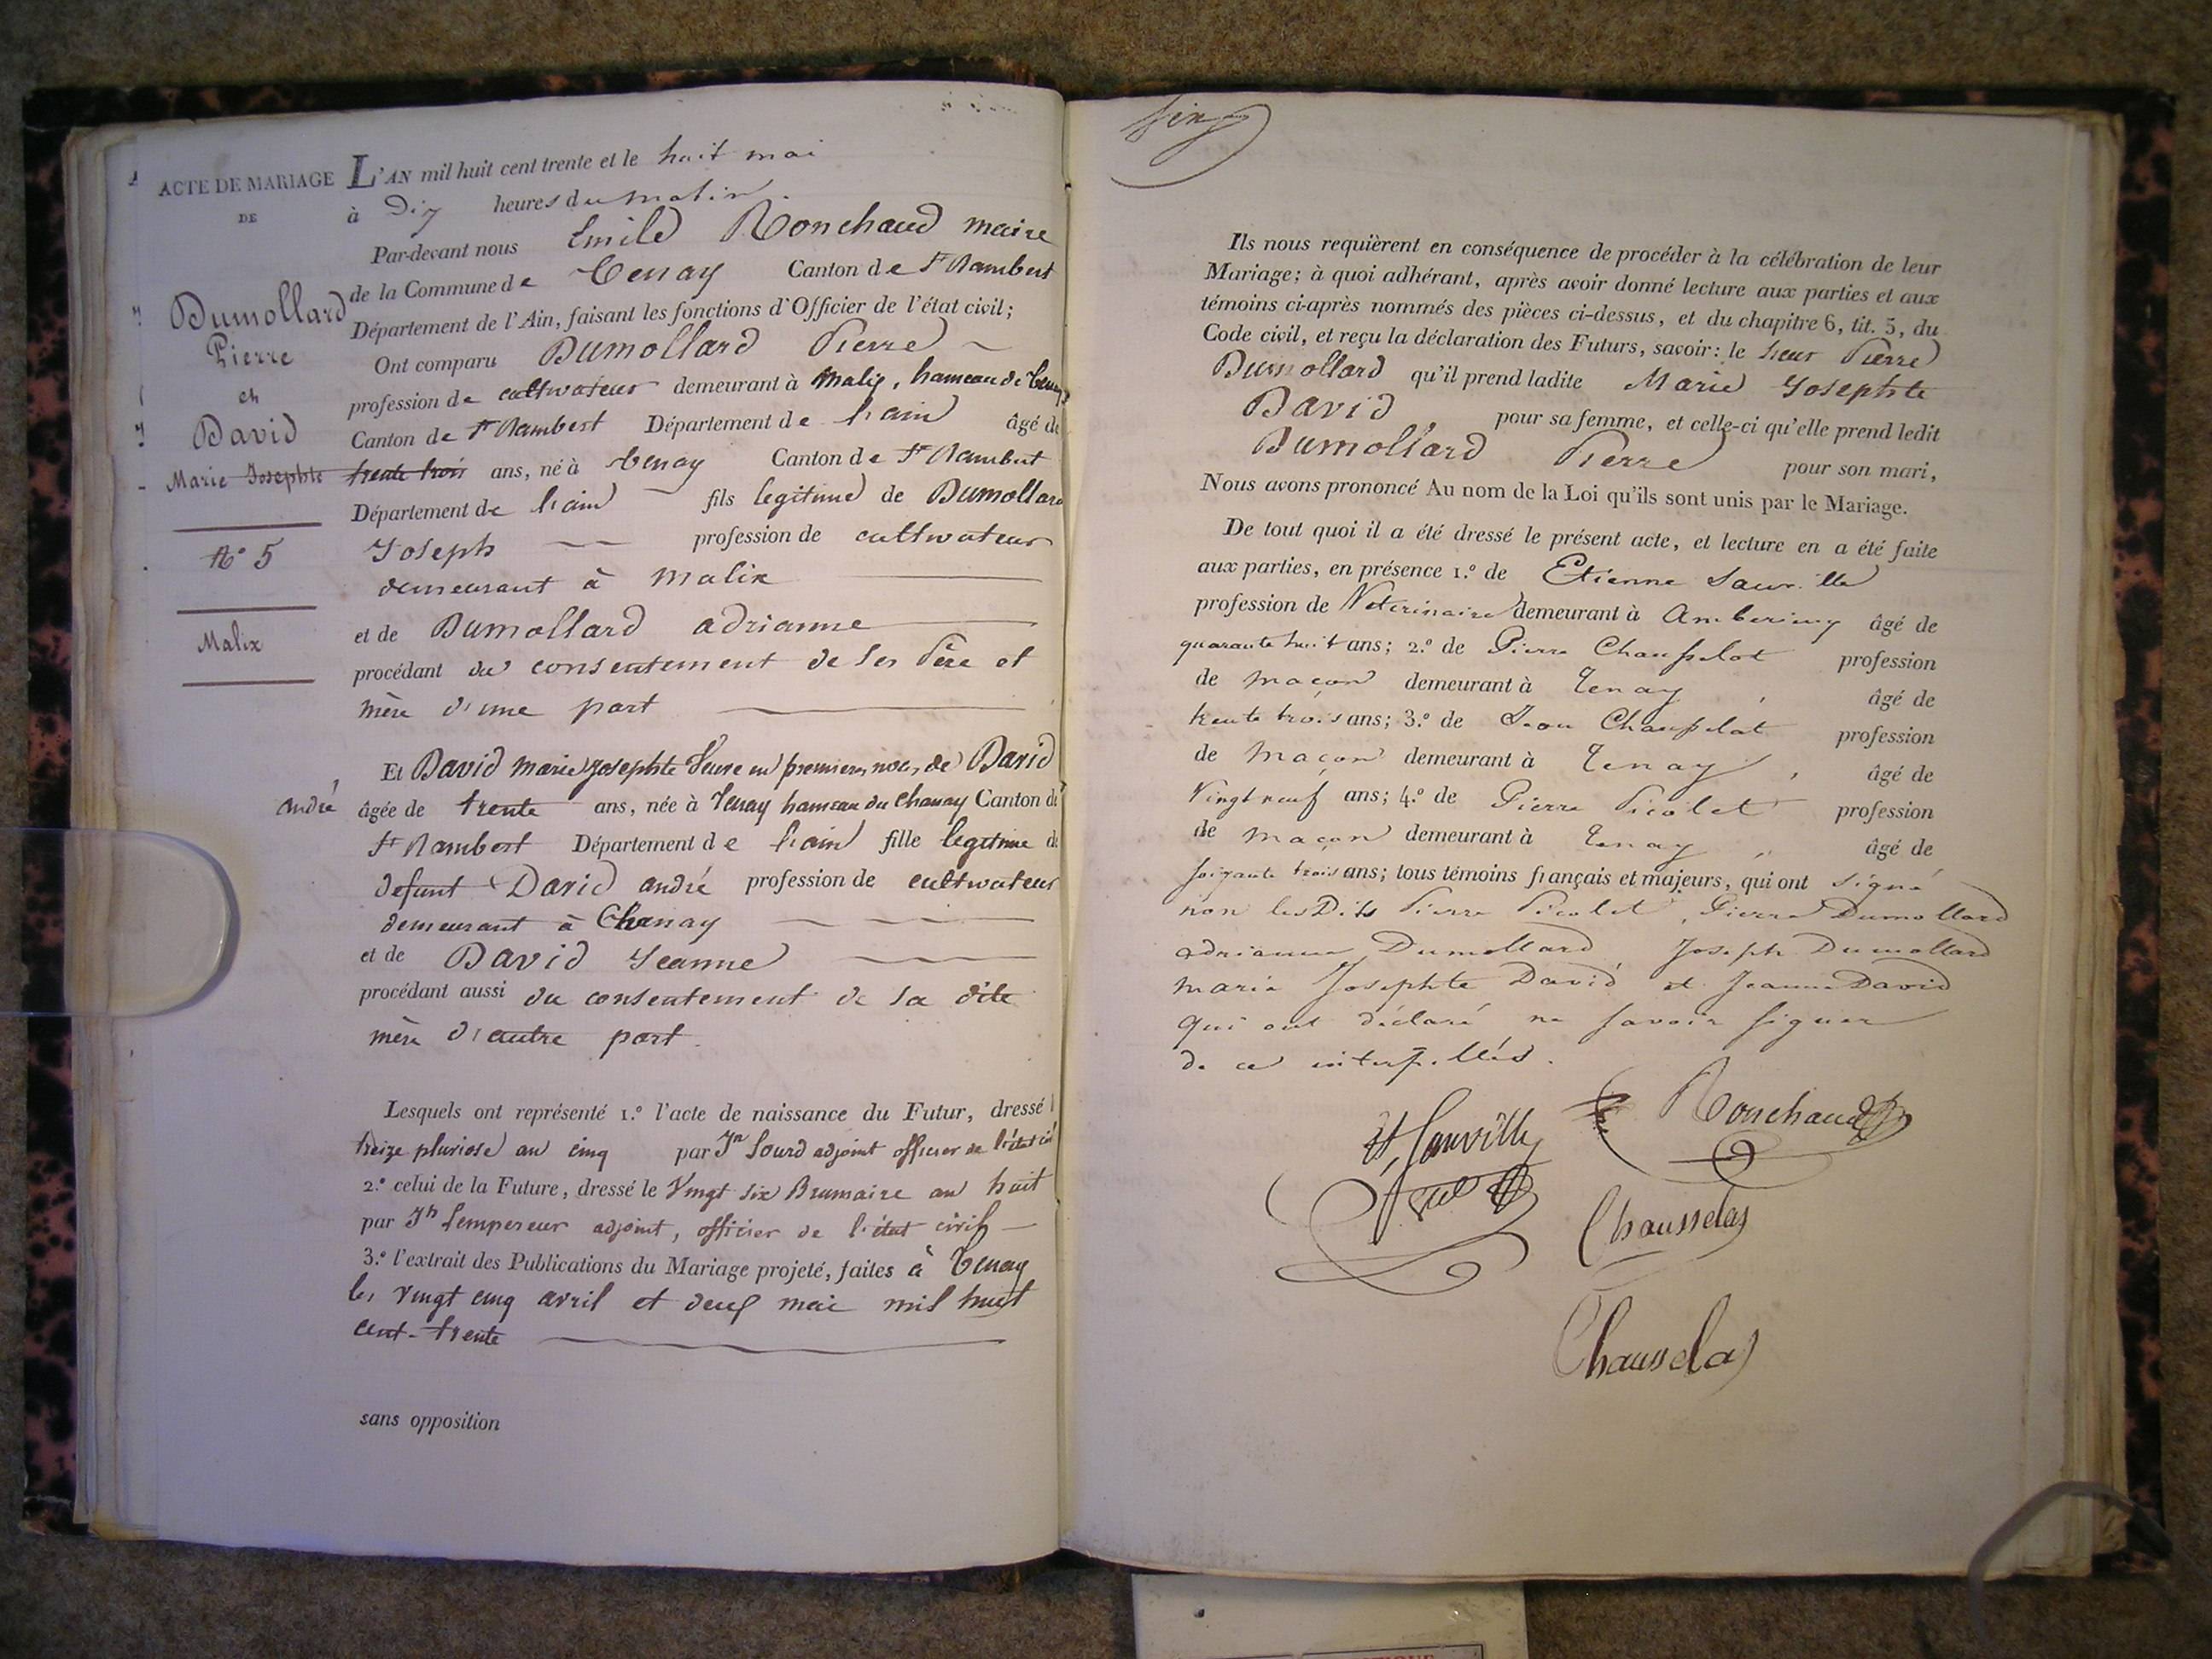 ACTE DE MARIAGE
DE
Dumollard
Pierre
et
David
Marie Josephte
N° 5
Malix
L'AN mil huit cent trente et le huit mai
à Dix heures du matin.
Par-devant nous Emile Ronchaud maire
de la Commune de Tenay Canton de St Rambert
Département de l'Ain, faisant les fonctions d'Officier de l'état civil;
Ont comparu Dumollard Pierre
profession de cultivateur demeurant à Malix, hameau de Tenay,
Canton de St Rambert Département de l'ain âgé de
trente trois ans, né à Tenay Canton de St Rambert
Département de l'ain fils legitime de Dumollard
Joseph profession de cultivateur
demeurant à Malix
et de Dumollard adrianne
procédant du consentement de ses Père et
mère d'une part
Et David Marie Josephte Veuve en premieres noces de David
andré âgée de trente ans, née à Tenay hameau du Chanay Canton de
St Rambert Département de l'ain fille legitime de
defunt David andré profession de cultivateur
demeurant à Chanay
et de David Jeanne
procédant aussi du consentement de sa dite
mère d'autre part.
Lesquels ont représenté 1.° l'acte de naissance du Futur, dressé l
treize pluviose an cinq par Jn Sourd adjoint officier de l'état civil
2.° celui de la Future, dressé le Vingt six Brumaire an huit
par Jh Lempereur adjoint, officier de l'état civil
3.° l'extrait des Publications du Mariage projeté, faites à Tenay
les vingt cinq avril et deux mai mil huit
cent trente
sans opposition
Ils nous requièrent en conséquence de procéder à la célébration de leur
Mariage; à quoi adhérant, après avoir donné lecture aux parties et aux
témoins ci-après nommés des pièces ci-dessus, et du chapitre 6, tit. 5, du
Code civil, et reçu la déclaration des Futurs, savoir: le sieur Pierre
Dumollard qu'il prend ladite Marie Josephte
David pour sa femme, et celle-ci qu'elle prend ledit
Dumollard Pierre pour son mari,
Nous avons prononcé Au nom de la Loi qu'ils sont unis par le Mariage.
De tout quoi il a été dressé le présent acte, et lecture en a été faite
aux parties, en présence 1.° de Etienne Sauville
profession de Veterinaire demeurant à âgé de
quarante huit ans; 2.° de Pierre Chausselat profession
de maçon demeurant à Tenay, âgé de
trente trois ans; 3.° de Jean Chausselat profession
de maçon demeurant à Tenay, âgé de
Vingt neuf ans; 4.° de Pierre Picolet profession
de maçon demeurant à Tenay, âgé de
soixante trois ans; tous témoins français et majeurs, qui ont signé
non lesDits Pierre Picolet, Pierre Dumollard
adrianne Dumollard Joseph Dumollard
marie Josephte David et Jeanne David
qui ont déclaré ne savoir signer
de ce interpellés.
Sauville
Ronchaud
Chausselas
Chausselas